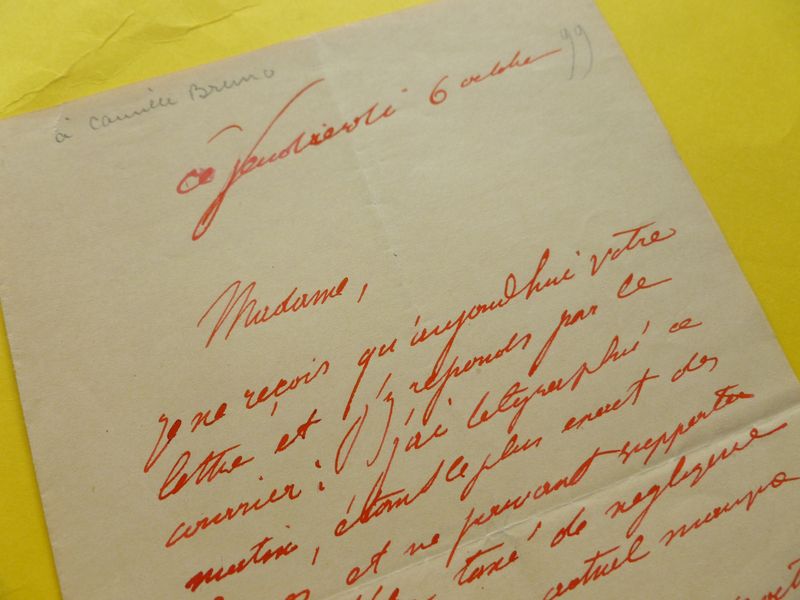 à Camille Bruno
99
ce Vendredi 6 octobre
Madame,
Je ne reçois qu'aujourd'hui votre
lettre et j'y réponds par ce
courrier : j'ai télégraphié ce
matin, étant le plus exact des
et ne pouvant supporter
taxé de négligence
actuel